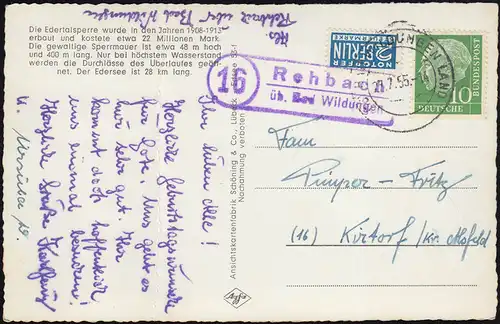 Die Edertalsperre wurde in den Jahren 1908-1913
erbaut und kostete etwa 22 Millionen Mark.
Die gewaltige Sperrmauer ist etwa 48 m hoch
und 400 m lang. Nur bei höchstem Wasserstand
werden die Durchlässe des Überlaufes geöff-
net. Der Edersee ist 28 km lang.
Rehbach über Bad Wildungen
Ihr lieben alle!
Herzliche Geburtstagswünsche
für Gote. Uns geht es
hier sehr gut. Ihr
kommt doch hoffentlich
uns einmal besuchen.
Herzliche Grüße
u.
Ansichtskartenfabrik Schöning & Co., Lübeck
Nachahmung verboten
16
Rehbach
üb. Bad Wildungen
2 BERLIN
NOTOPFER
STEUERMARKE
7.55
DEUTSCHE
BUNDESPOST
10
Fam
Pimper-Fritz
(16) Kirtorf /Kr. Alsfeld
Agfa